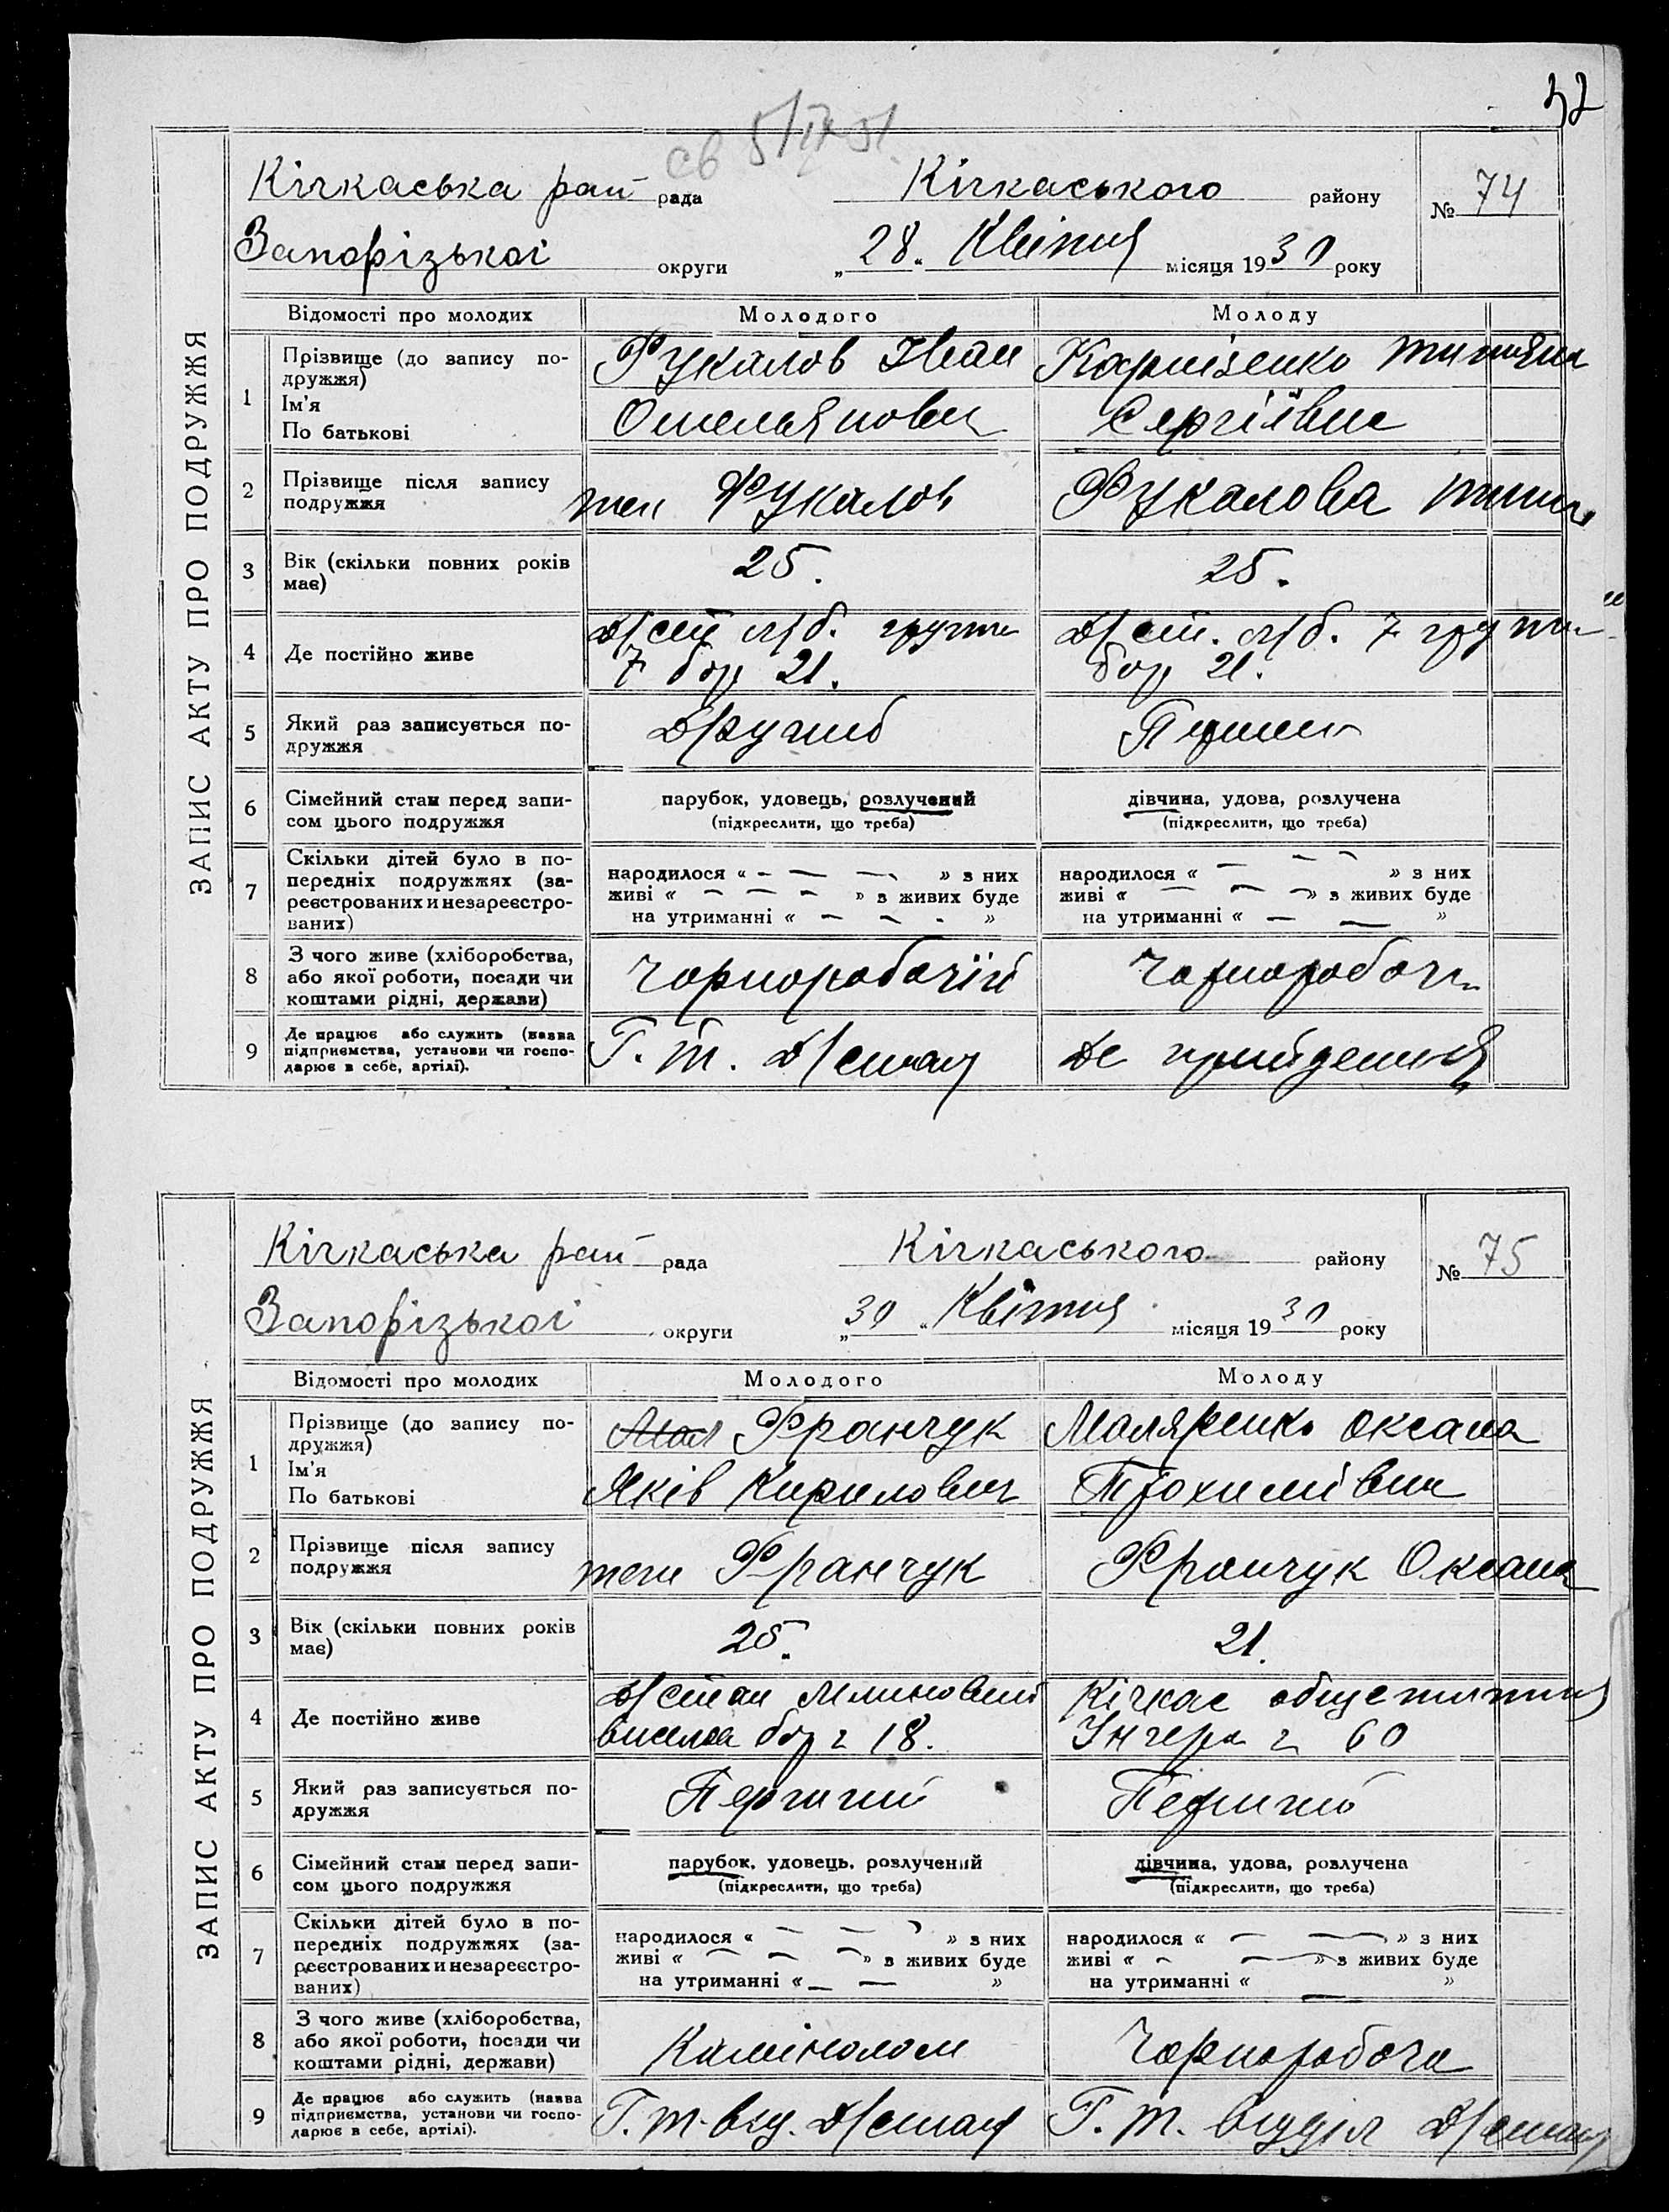 св 5/IX 31
Кічкаська рай рада Кічкаського району № 74
Запорізької округи „28" Квітня місяця 1930 року
ЗАПИС АКТУ ПРО ПОДРУЖЖЯ
Відомості про молодих Молодого Молоду
1 Прізвище (до запису по-
дружжя)
Ім'я
По батькові
Фукалов Іван
Омельянович
Сергіївна
2 Прізвище після запису
подружжя
Фукалов
Фукалова
3 Вік (скільки повних років
має)
25.
25.
4 Де постійно живе
групи
7 бар 21.
7 групи
бар 21.
5 Який раз записується по-
дружжя
Другий
6 Сімейний стан перед запи-
сом цього подружжя
парубок, удовець, розлучений
(підкреслити, що треба)
дівчина, удова, розлучена
(підкреслити, що треба)
7 Скільки дітей було в по-
передніх подружжях (за-
реєстрованих и незареєстро-
ваних)
народилося « — — — » з них
живі « — — — » з живих буде
на утриманні « — — - »
народилося « — — — » з них
живі « — — — » з живих буде
на утриманні « — — »
8 З чого живе (хліборобства,
або якої роботи, посади чи
коштами рідні, держави)
Чорноробочій
Чорноробоча
9 Де працює або служить (назва
підприємства, установи чи госпо-
дарює в себе, артілі).
Г. т.
Де прийдеться
Кічкаська рай рада Кічкаського району № 75
Запорізької округи „30" Квітня місяця 1930 року
ЗАПИС АКТУ ПРО ПОДРУЖЖЯ
Відомості про молодих Молодого Молоду
1 Прізвище (до запису по-
дружжя)
Ім'я
По батькові
Мал Франчук
Яків Кирилович
Маляренко Оксана
Трохимівна
2 Прізвище після запису
подружжя
Франчук
Франчук Оксана
3 Вік (скільки повних років
має)
25.
21.
4 Де постійно живе
бар 2 18.
Кічкас
60
5 Який раз записується по-
дружжя
Перший
Перший
6 Сімейний стан перед запи-
сом цього подружжя
парубок, удовець, розлучений
(підкреслити, що треба)
дівчина, удова, розлучена
(підкреслити, що треба)
7 Скільки дітей було в по-
передніх подружжях (за-
реєстрованих и незареєстро-
ваних)
народилося « — — — » з них
живі « — — — » з живих буде
на утриманні « — — »
народилося « — — » з них
живі « — — » з живих буде
на утриманні « — »
8 З чого живе (хліборобства,
або якої роботи, посади чи
коштами рідні, держави)
Каменолом
Чорноробоча
9 Де працює або служить (назва
підприємства, установи чи госпо-
дарює в себе, артілі).
Г. т. від.
Г. т. відділ